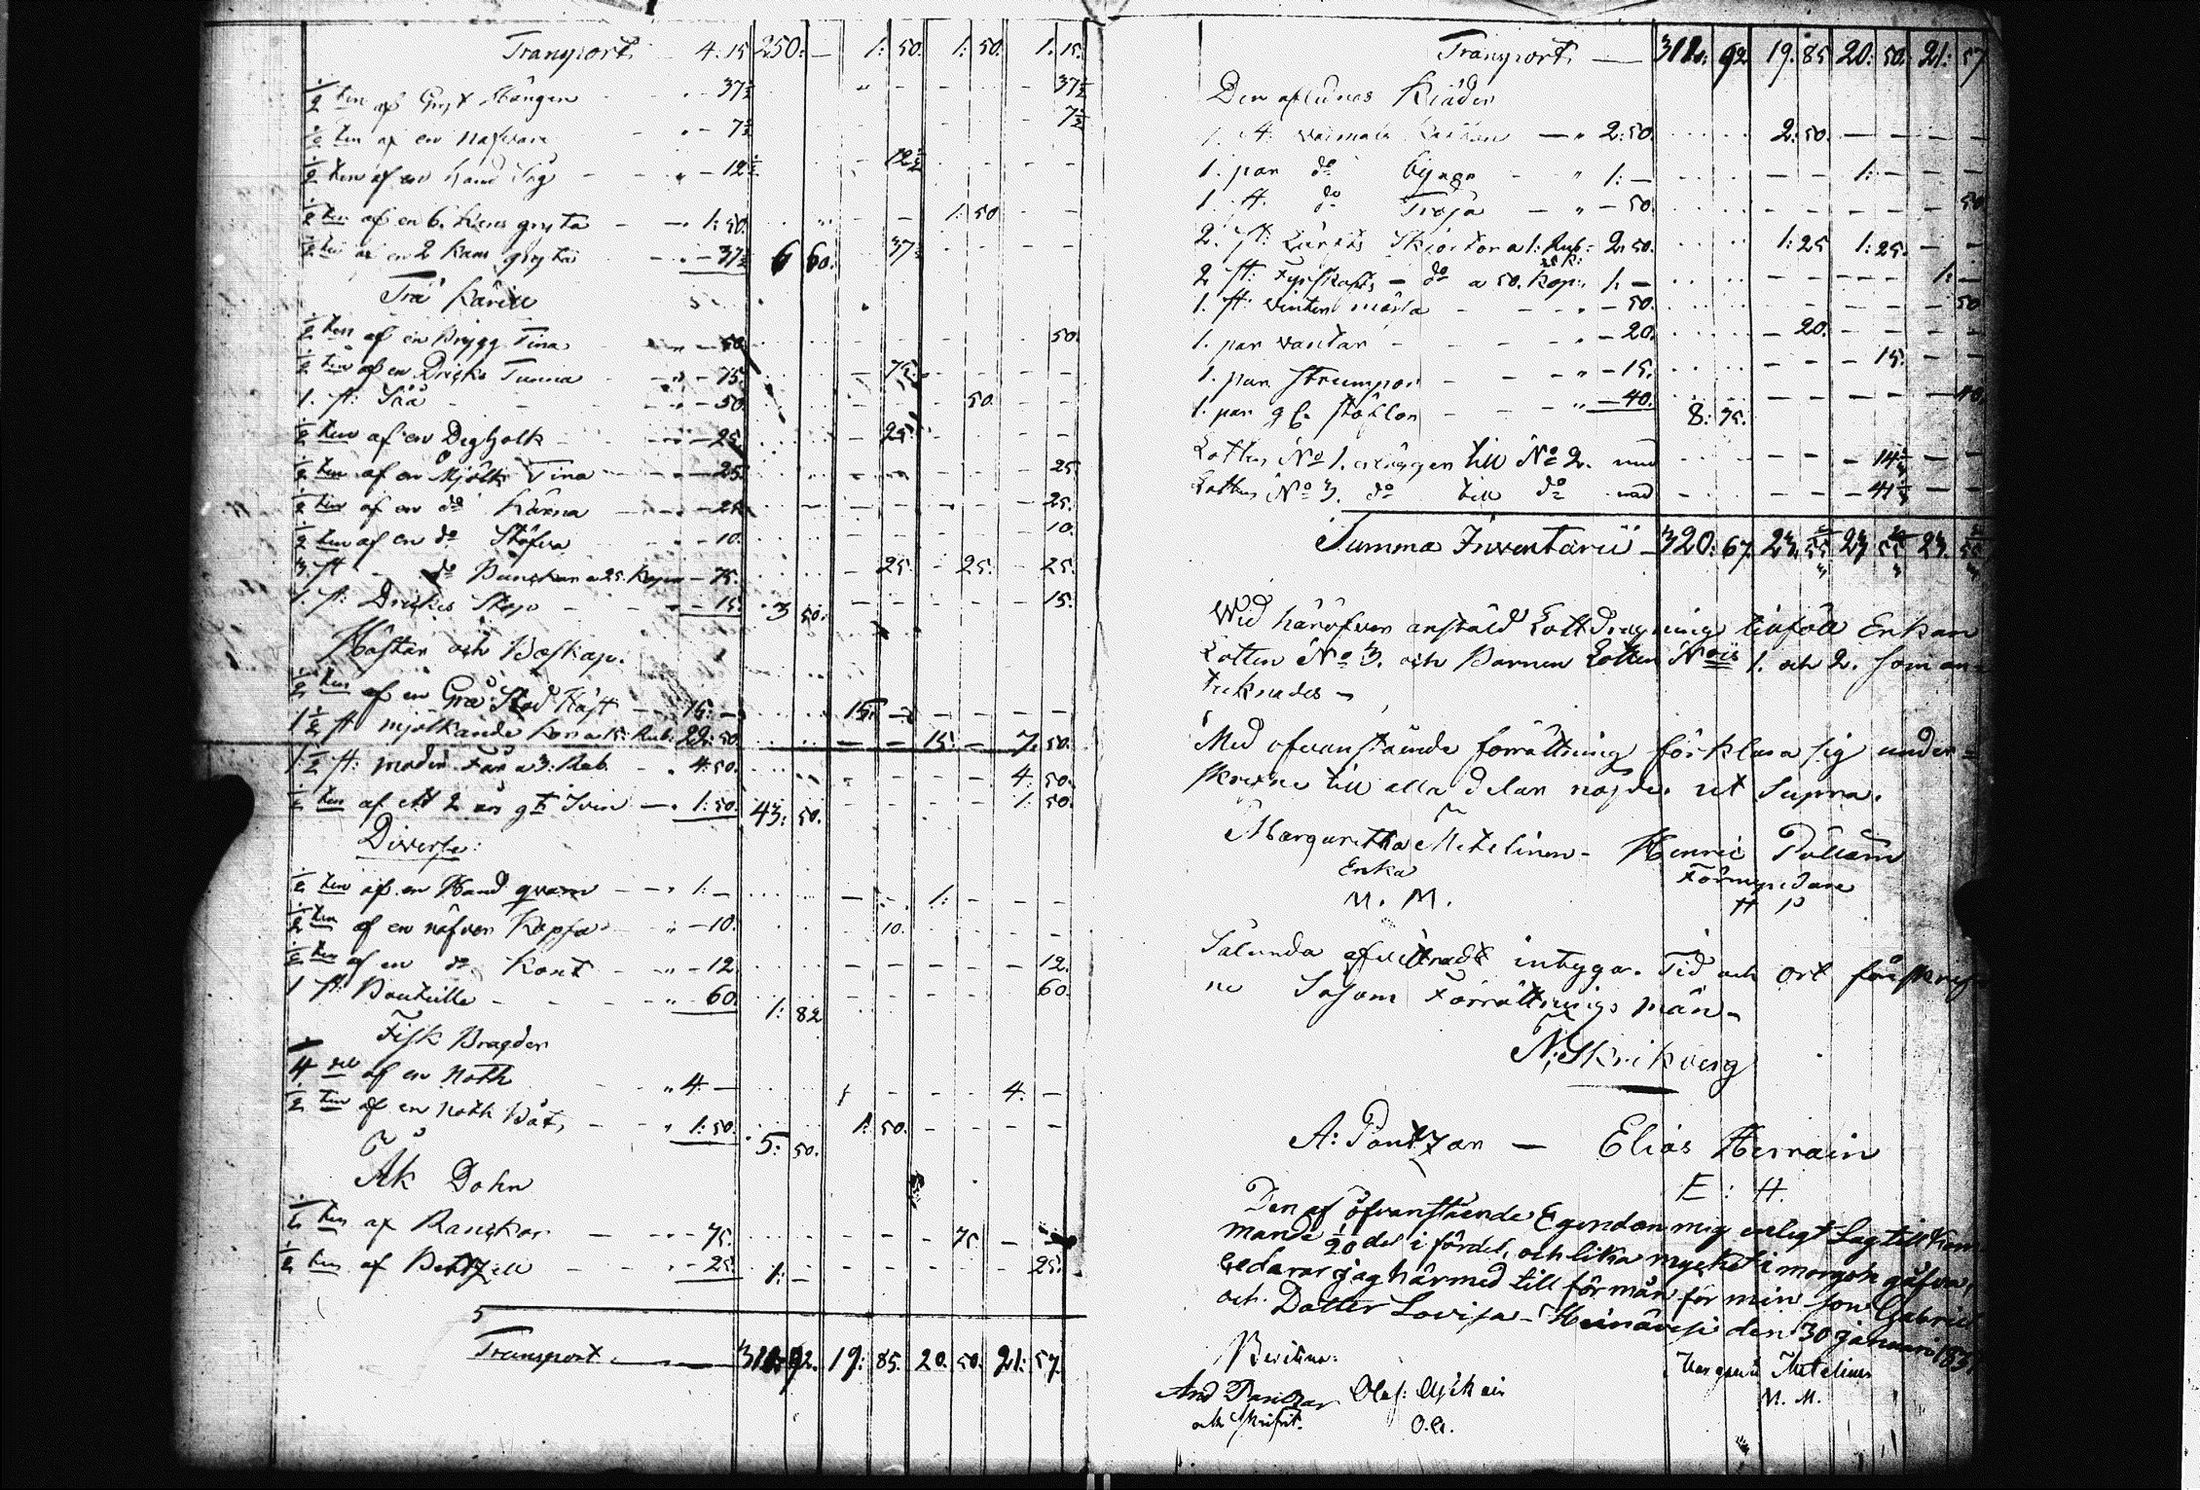 Transport 4.15 250: — 1: 50. 1: 50. 1. 15.
½ ten af Gryt Stången - 37½ 37½
½ ten af en nafvare - 7½ 7½
½ ten af en hand Såg - 12½ 12½
½ ten af en 6. kans gryta - 1: 50. 1: 50
½ ten af en 2 kans gryta - 37½ 6 60. 37½
Trä Kärill
½ ten af en Brygg Tina - 50. 50.
½ ten af en Dricks Tunna - 75. 75.
1. st: Såå - 50. 50.
½ ten af en Degholk - 25. 25.
½ ten af en Mjölk Tina - 25. 25.
½ ten af en do Kärna - 25. 25.
½ ten af en do Stöfva - 10. 10.
3. st - do Bunckar a 25. Kop - 75. 25. 25. 25.
1. st: Drickes Stop - 15. 3 50. 15.
Hästar och Boskap.
½ ten af en Grå Stod Häst - 15: — 15. —
1½ st mjölkande Kor a 15: Rub: 22: 50. 15 — 7. 50.
1½ st: moder Får a 3: Rub. 4: 50. 4. 50.
½ ten af ett 2 års gt Svin - 1: 50. 43: 50. 1: 50.
Diverse:
½ ten af en Hand qvarn - 1: — 1: —
½ ten af en näfver Kappa - 10. 10.
½ ten af en do Kont - 12. 12.
1 st: Bouteille - 60. 1: 82 60.
Fisk Bragder
af en Noth 4: — 4. —
½ ten af en noth Båt, 1: 50. 5: 50. 1: 50.
Åk Dohn
½ ten af Ranckor - 75. 75.
½ ten af Betzell - 25. 1: — 25.
Transport. 92. 19: 85. 20. 50. 21: 57.
Transport. 92 19: 85 20: 50. 21: 57
Den aflidnes Kläder
1. st. vadmals 2: 50. 2: 50.
1. par do Byxor 1: — 1: —
1. st. do Tröja - 50. 50.
2. st: Lärfts Skjortor a 1: Rub: 25 K: 2: 50. 1: 25 1: 25.
2 st: Fyrskafts - do a 50. Kop: 1: — 1: —
1. st: vinter mössa - 50. 50
1. par vantar - 20. 20.
1. par strumpor - 15. 15.
1. par gl. stöflor - 40. 8: 75. 40.
Lotten No 1. erlägger till No 2. med 14
Lotten No 3. do till do med 41
Summa Inventarii 320: 67. 23. 23 23.
Wid häröfver anstäld Lottdragning tillföll Enkan
Lotten No 3. och Barnen Lotten Nois 1. och 2. som an=
tecknades —
Med ofvanstående förrättning förklara sig under=
skrefne till alla delar nöjde. ut Supra.
Margaretha Metelinen - Henric Pöllänen
Enka Förmyndare
M. M. H P
Sålunda afvittradt intyga. Tid och Ort förskref=
ne Såsom Förrättnings män.
N: Skrikberg
A: Pantzar — Elias Hernain
E: H.
Den af ofvanstående Egendom mig enligt Lag tillkom=
mande 1/20 del i fördel, och lika mycket i morgon gåfva,
cederar jag härmed till förmån för min son Gabriel
och Dotter Lovisa - Heinävesi den 30 Januari 183
Bevittna: Margareta Metelinen
And Pantzar Olof: M. M.
och Skrifvit. O.